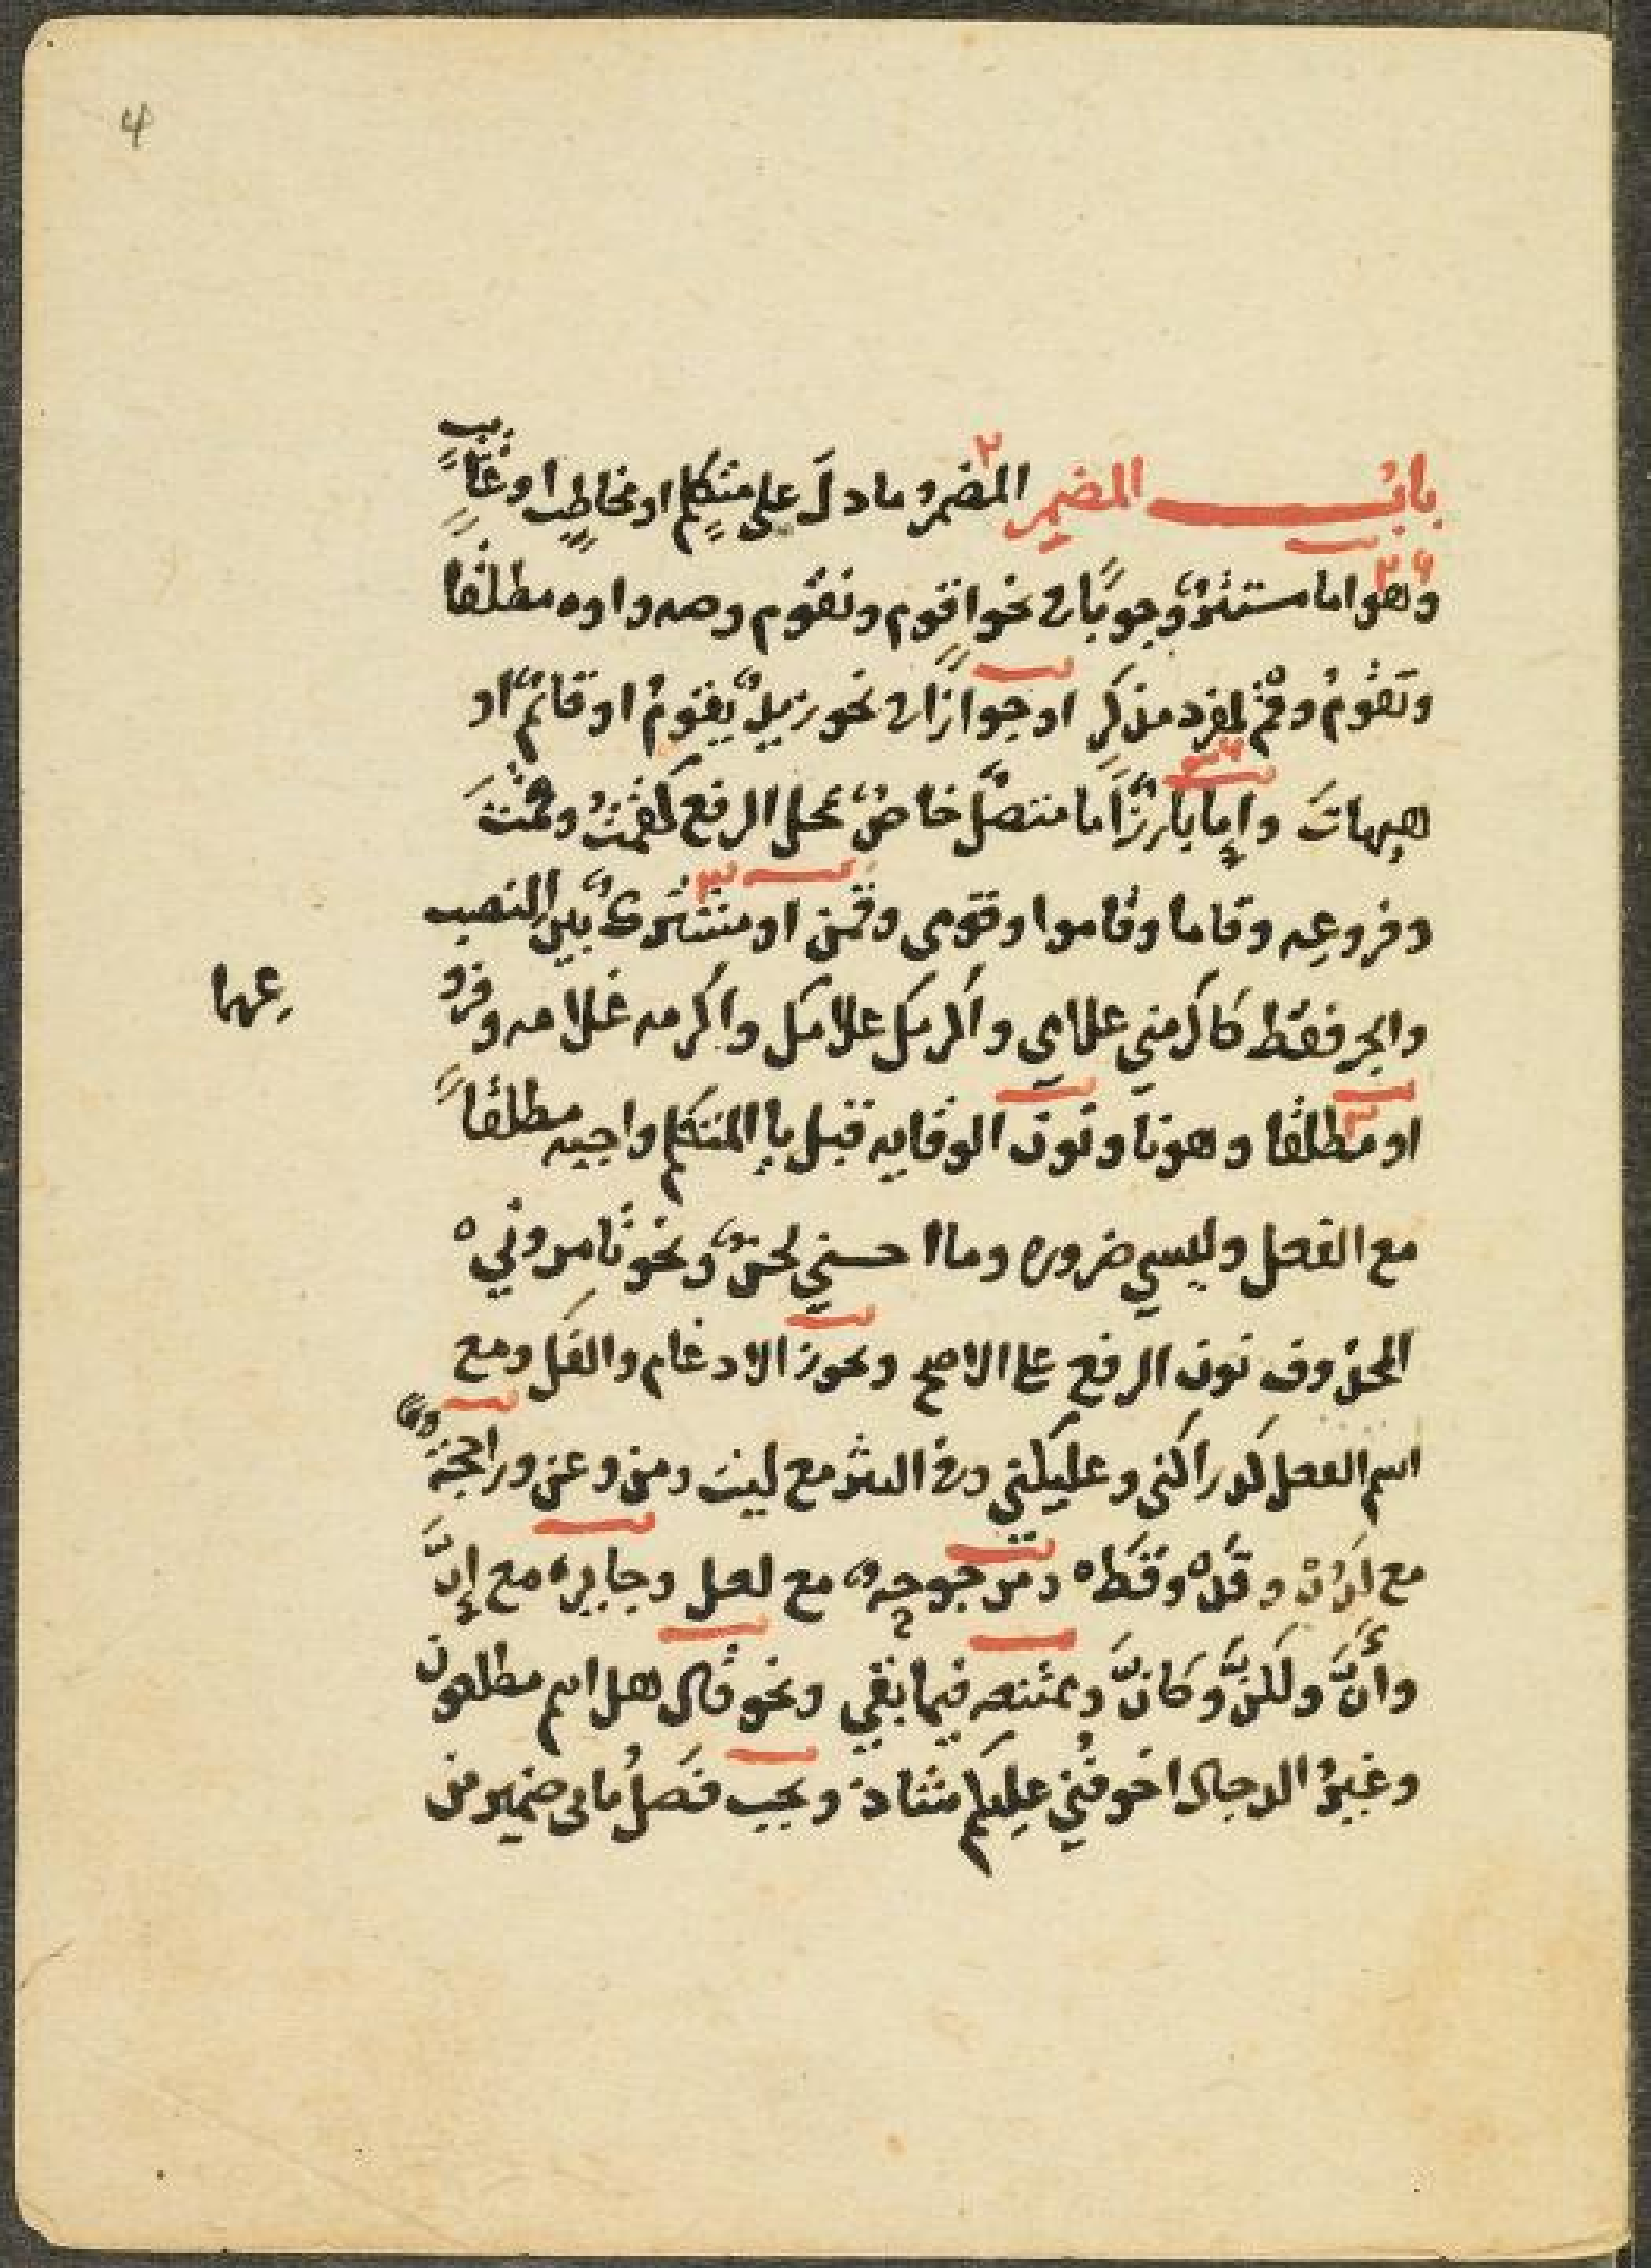 4
باب المضمر المضمر ما دل على متكلم او مخاطب او غايب
وهو اما مستتر وجوبا في نحو اقوم ونقوم وصه واوه مطلقا
وتقوم وقم لمفرد مذكر او جوازا في نحو زيد يقوم او قايم او
هيهات واما بارز اما متصل خاص بمحل الرفع كقمت وقمت
وفروعه وقاما وقاموا وقومى وقمن او مشترك بين النصب
والجر فقط كاكرمني غلامي واكرمك غلامك واكرمه غلامه وفرو
عهما
او مطلقا وهو نا ونون الوقايه قبل يا المتكلم واجبه مطلقا
مع الفعل وليسي ضروره وما احسني لحن ونحو تامروني
المحذوف نون الرفع على الاصح ويجوز الادغام والفك ومع
اسم الفعل كدراكني وعليكني وفي النثر مع ليت ومن وعن وراجحة
مع لدن وقد وقط ومرجوحه مع لعل وجايزه مع إن
وأن ولكن وكان وممتنعه فيما بقي ونحو قال هل انتم مطلعون
وغير الدجال اخوفني عليكم شاذ ويجب فصل ثاني ضميرين